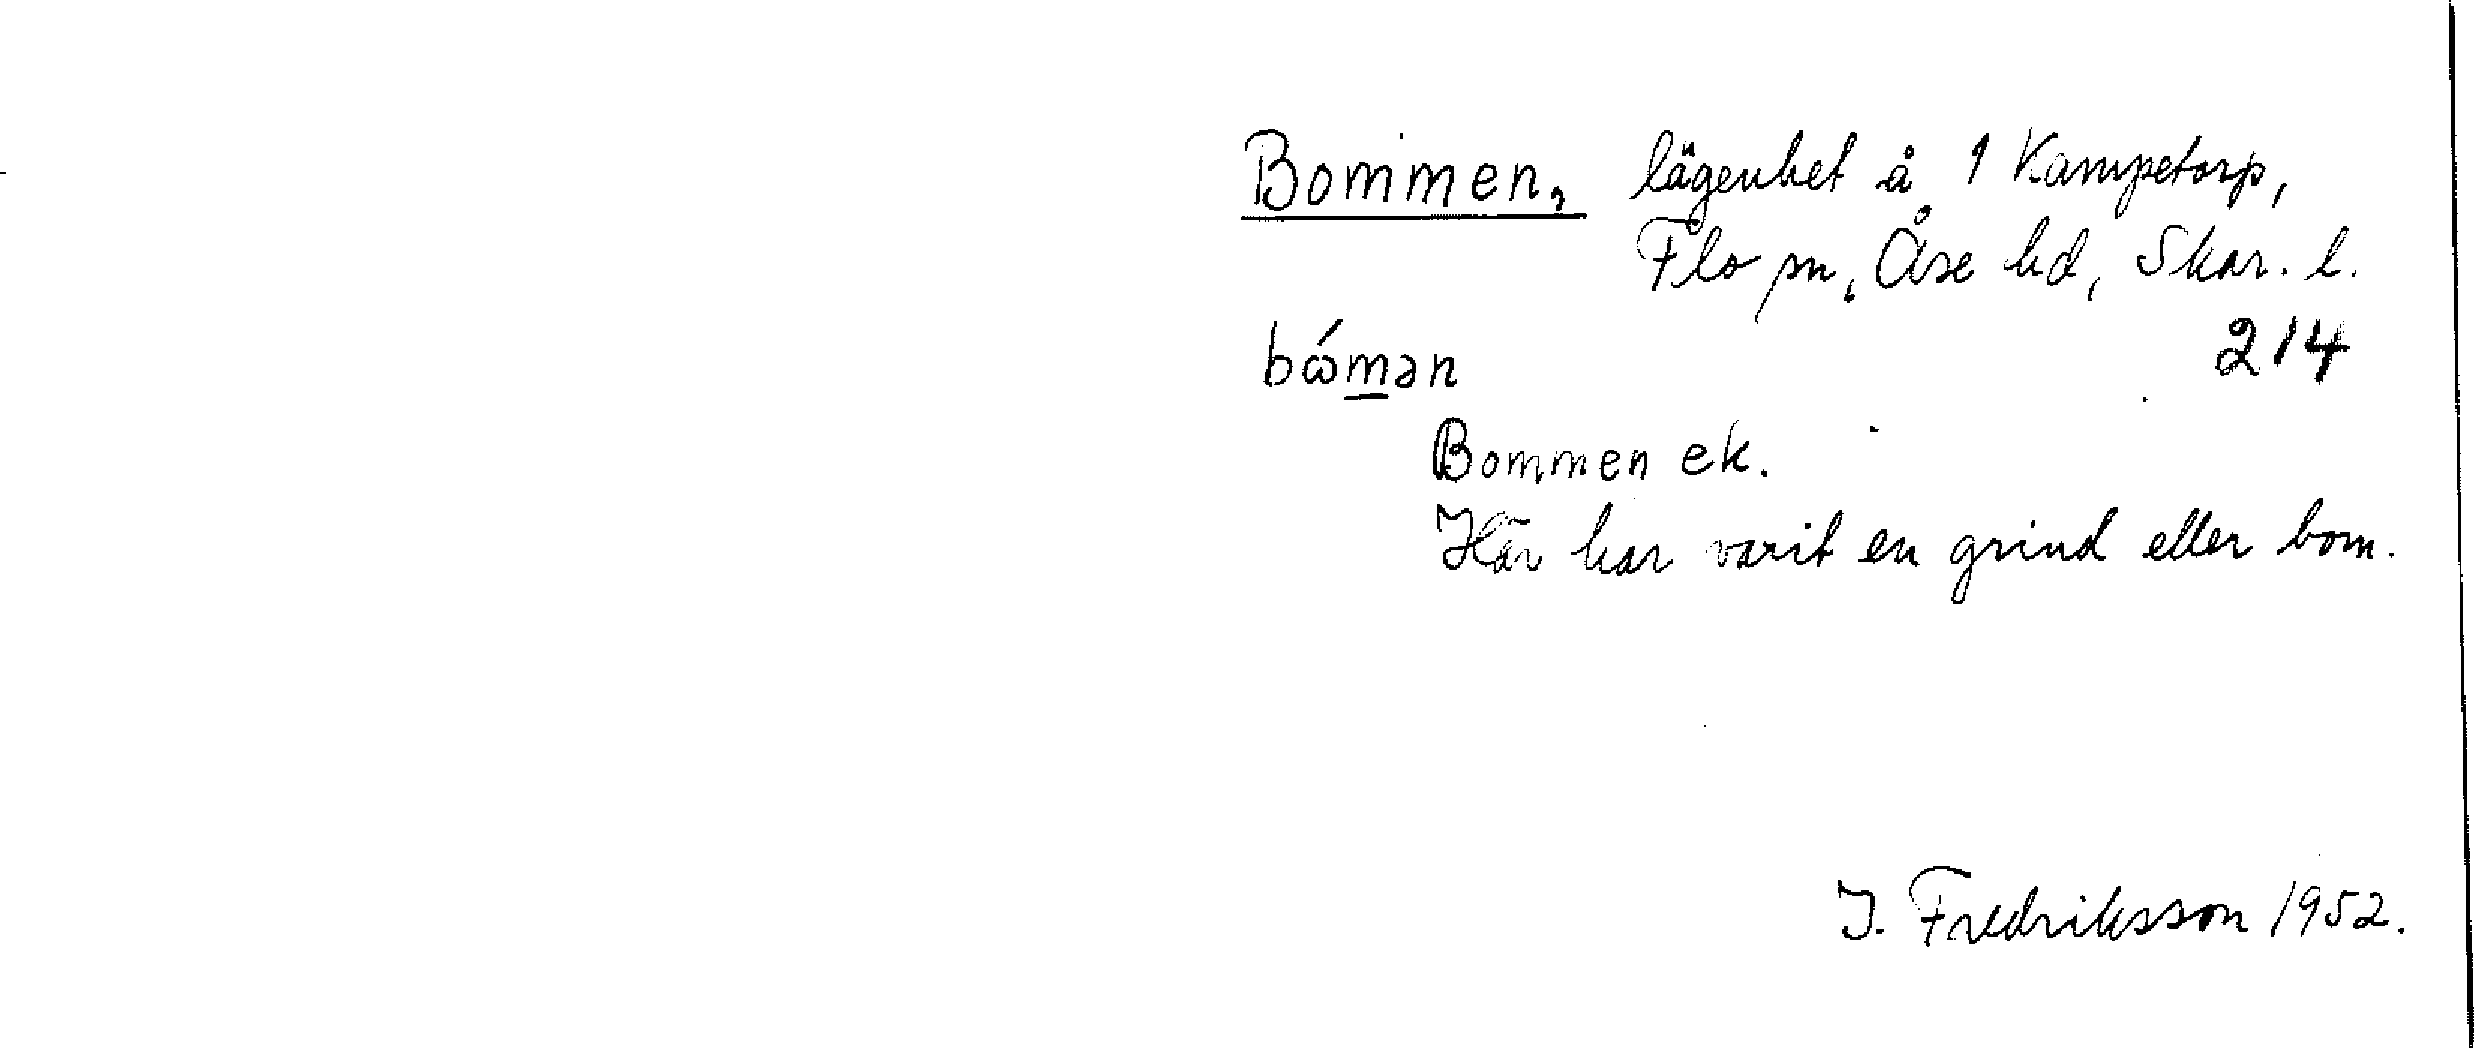 Bommen, lägenhet å 1 Kampetorp,
Flo sn, Åse hd, Skar. l.
bώmən 214
Bommen ek.
Här har varit en grind eller bom.
J. Fredriksson 1952.